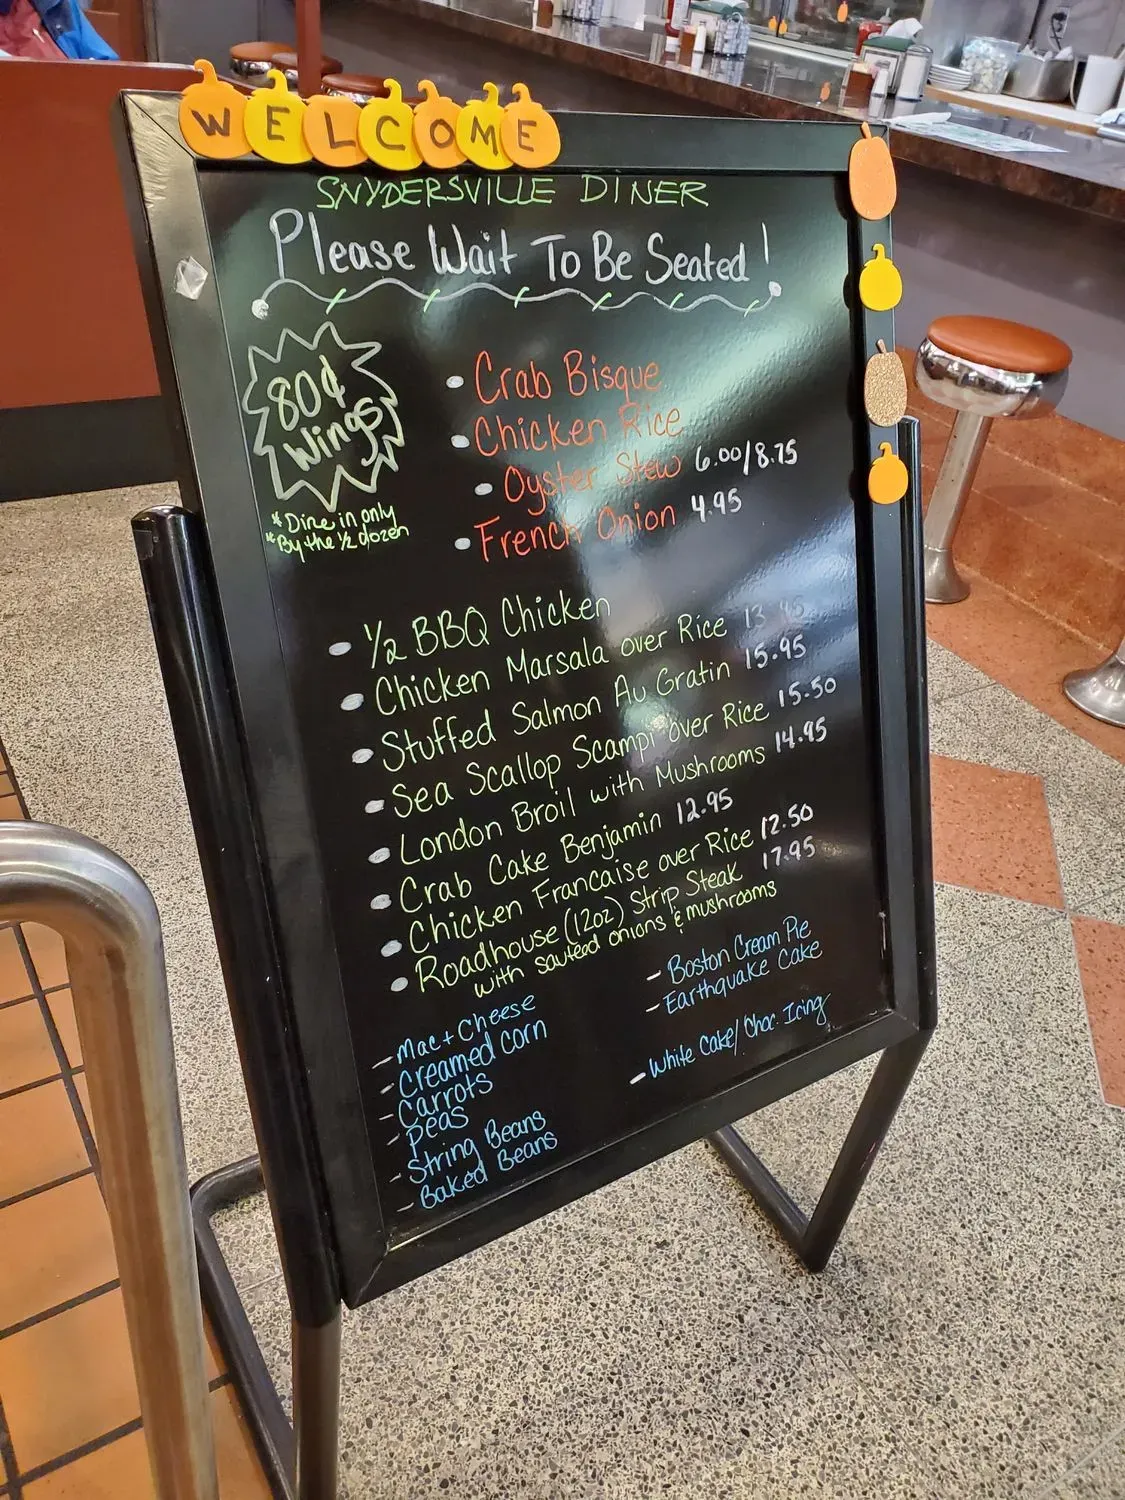 WELCOME
SNYDERSVILLE DINER
Please Wait To Be Seated!
80¢
Wings
* Dine in only
* By the 1/2 dozen
• Crab Bisque
• Chicken Rice
• Oyster Stew 6.00/8.75
• French Onion 4.95
• 1/2 BBQ Chicken
• Chicken Marsala over Rice
• Stuffed Salmon Au Gratin 15.95
• Sea Scallop Scampi over Rice 15.50
• London Broil with Mushrooms 14.95
• Crab Cake Benjamin 12.95
• Chicken Francaise over Rice 12.50
• Roadhouse (12oz) Strip Steak 17.95
with sauteed onions & mushrooms
- Mac + Cheese
- Creamed Corn
- Carrots
- Peas
- String Beans
- Baked Beans
- Boston Cream Pie
- Earthquake Cake
- White Cake/Choc. Icing